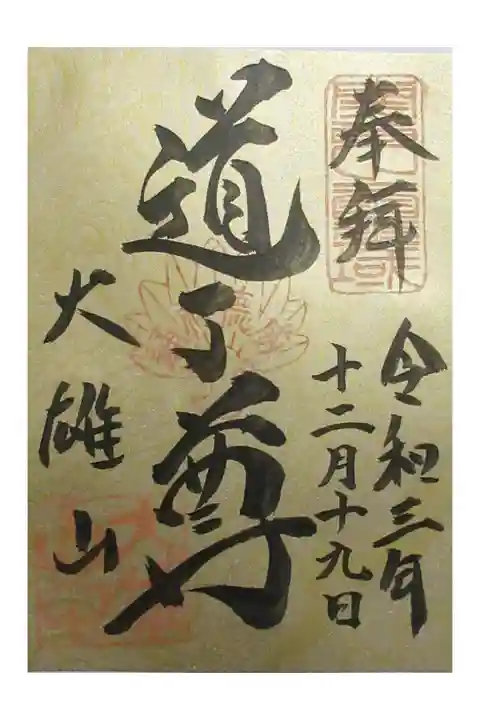 奉拜
令和三年
十二月十九日
道了尊
大雄山